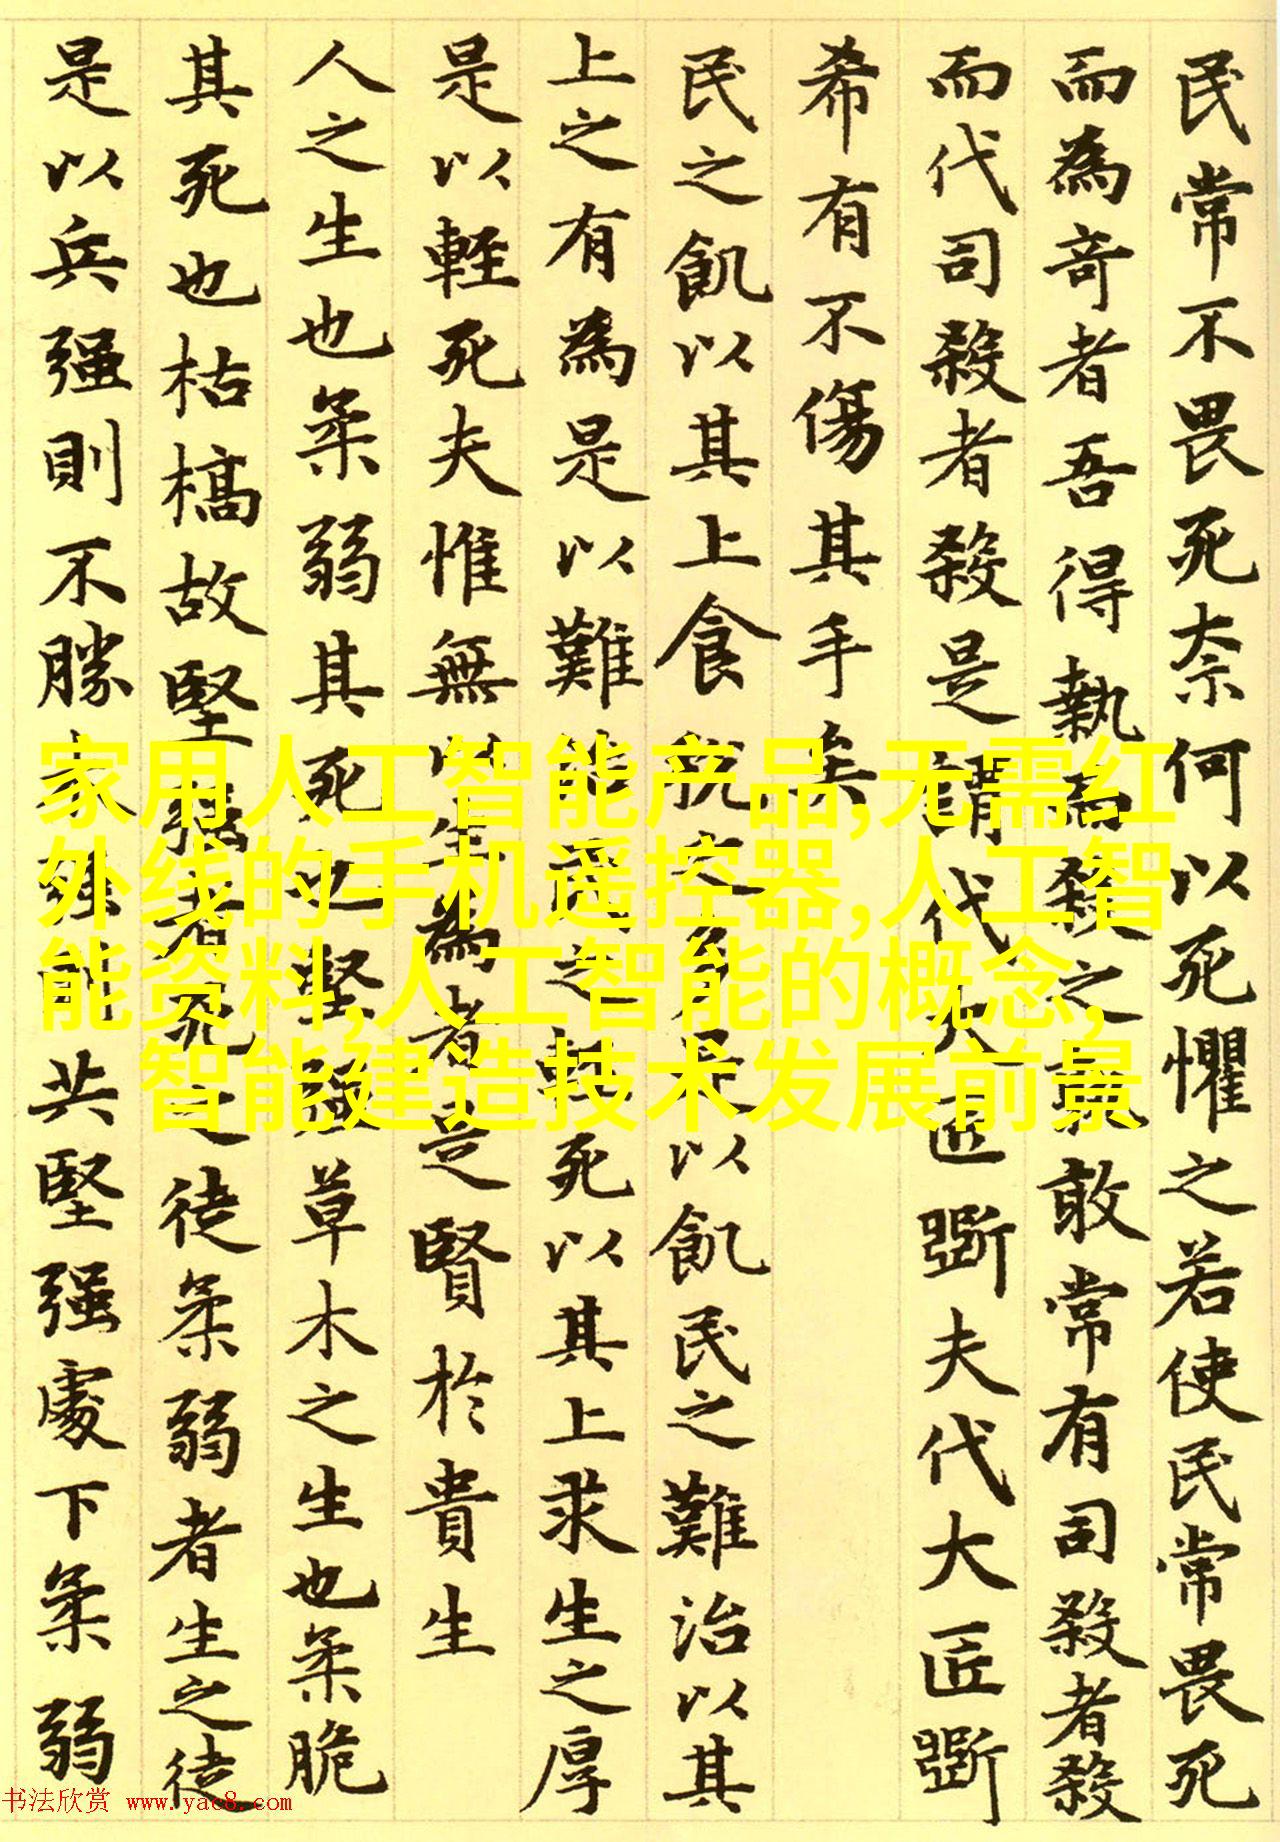 民常不畏死奈何以死懼之若使民常畏死
而為奇者吾得執而殺之孰敢常有司殺者殺
而代司殺者殺是謂代大匠斲夫代大匠斲
希有不傷其手矣
民之飢以其上食税之多是以飢民之難治以其
上之有為是以難治民之輕死以其上求生之厚
是以輕死夫惟無以生為者是賢於貴生
人之生也柔弱其死也堅强草木之生也柔脆
其死也枯槁故堅强者死之徒柔弱者生之徒
是以兵强則不勝木强則共堅强處下柔弱
家用人工智能产品,无需红
外线的手机遥控器,人工智
能资料,人工智能的概念,
智能建造技术发展前景
书法欣赏 www.yac8.com